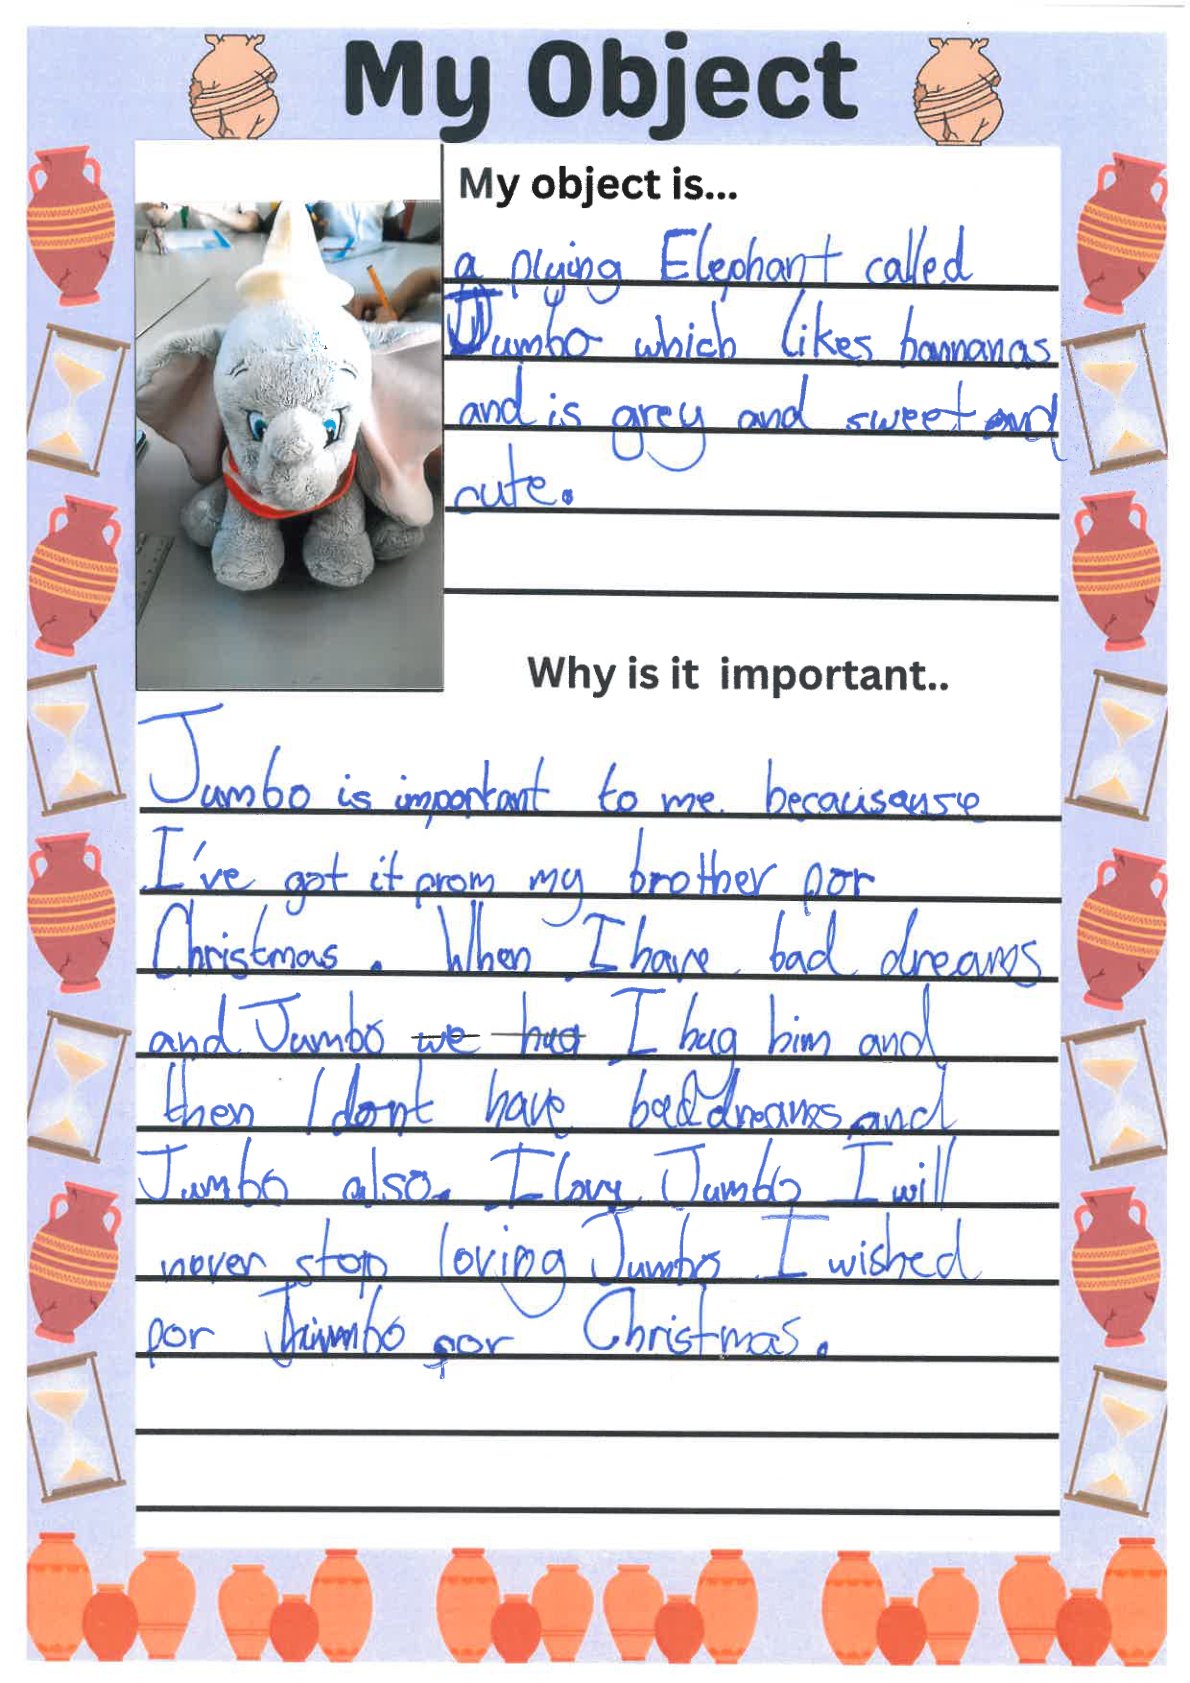 My Object
My object is...
a plying Elephant called
Jumbo which likes bannanas
and is grey and sweet and
cute.
Why is it important..
Jumbo is important to me becausause
I've got it prom my brother por
Christmas. When I have bad dreams
and Jumbo we hug I hug him and
then I dont have bad dreams and
Jumbo also. I love Jumbo I will
never stop loving Jumbo I wished
por Jumbo por Christmas.